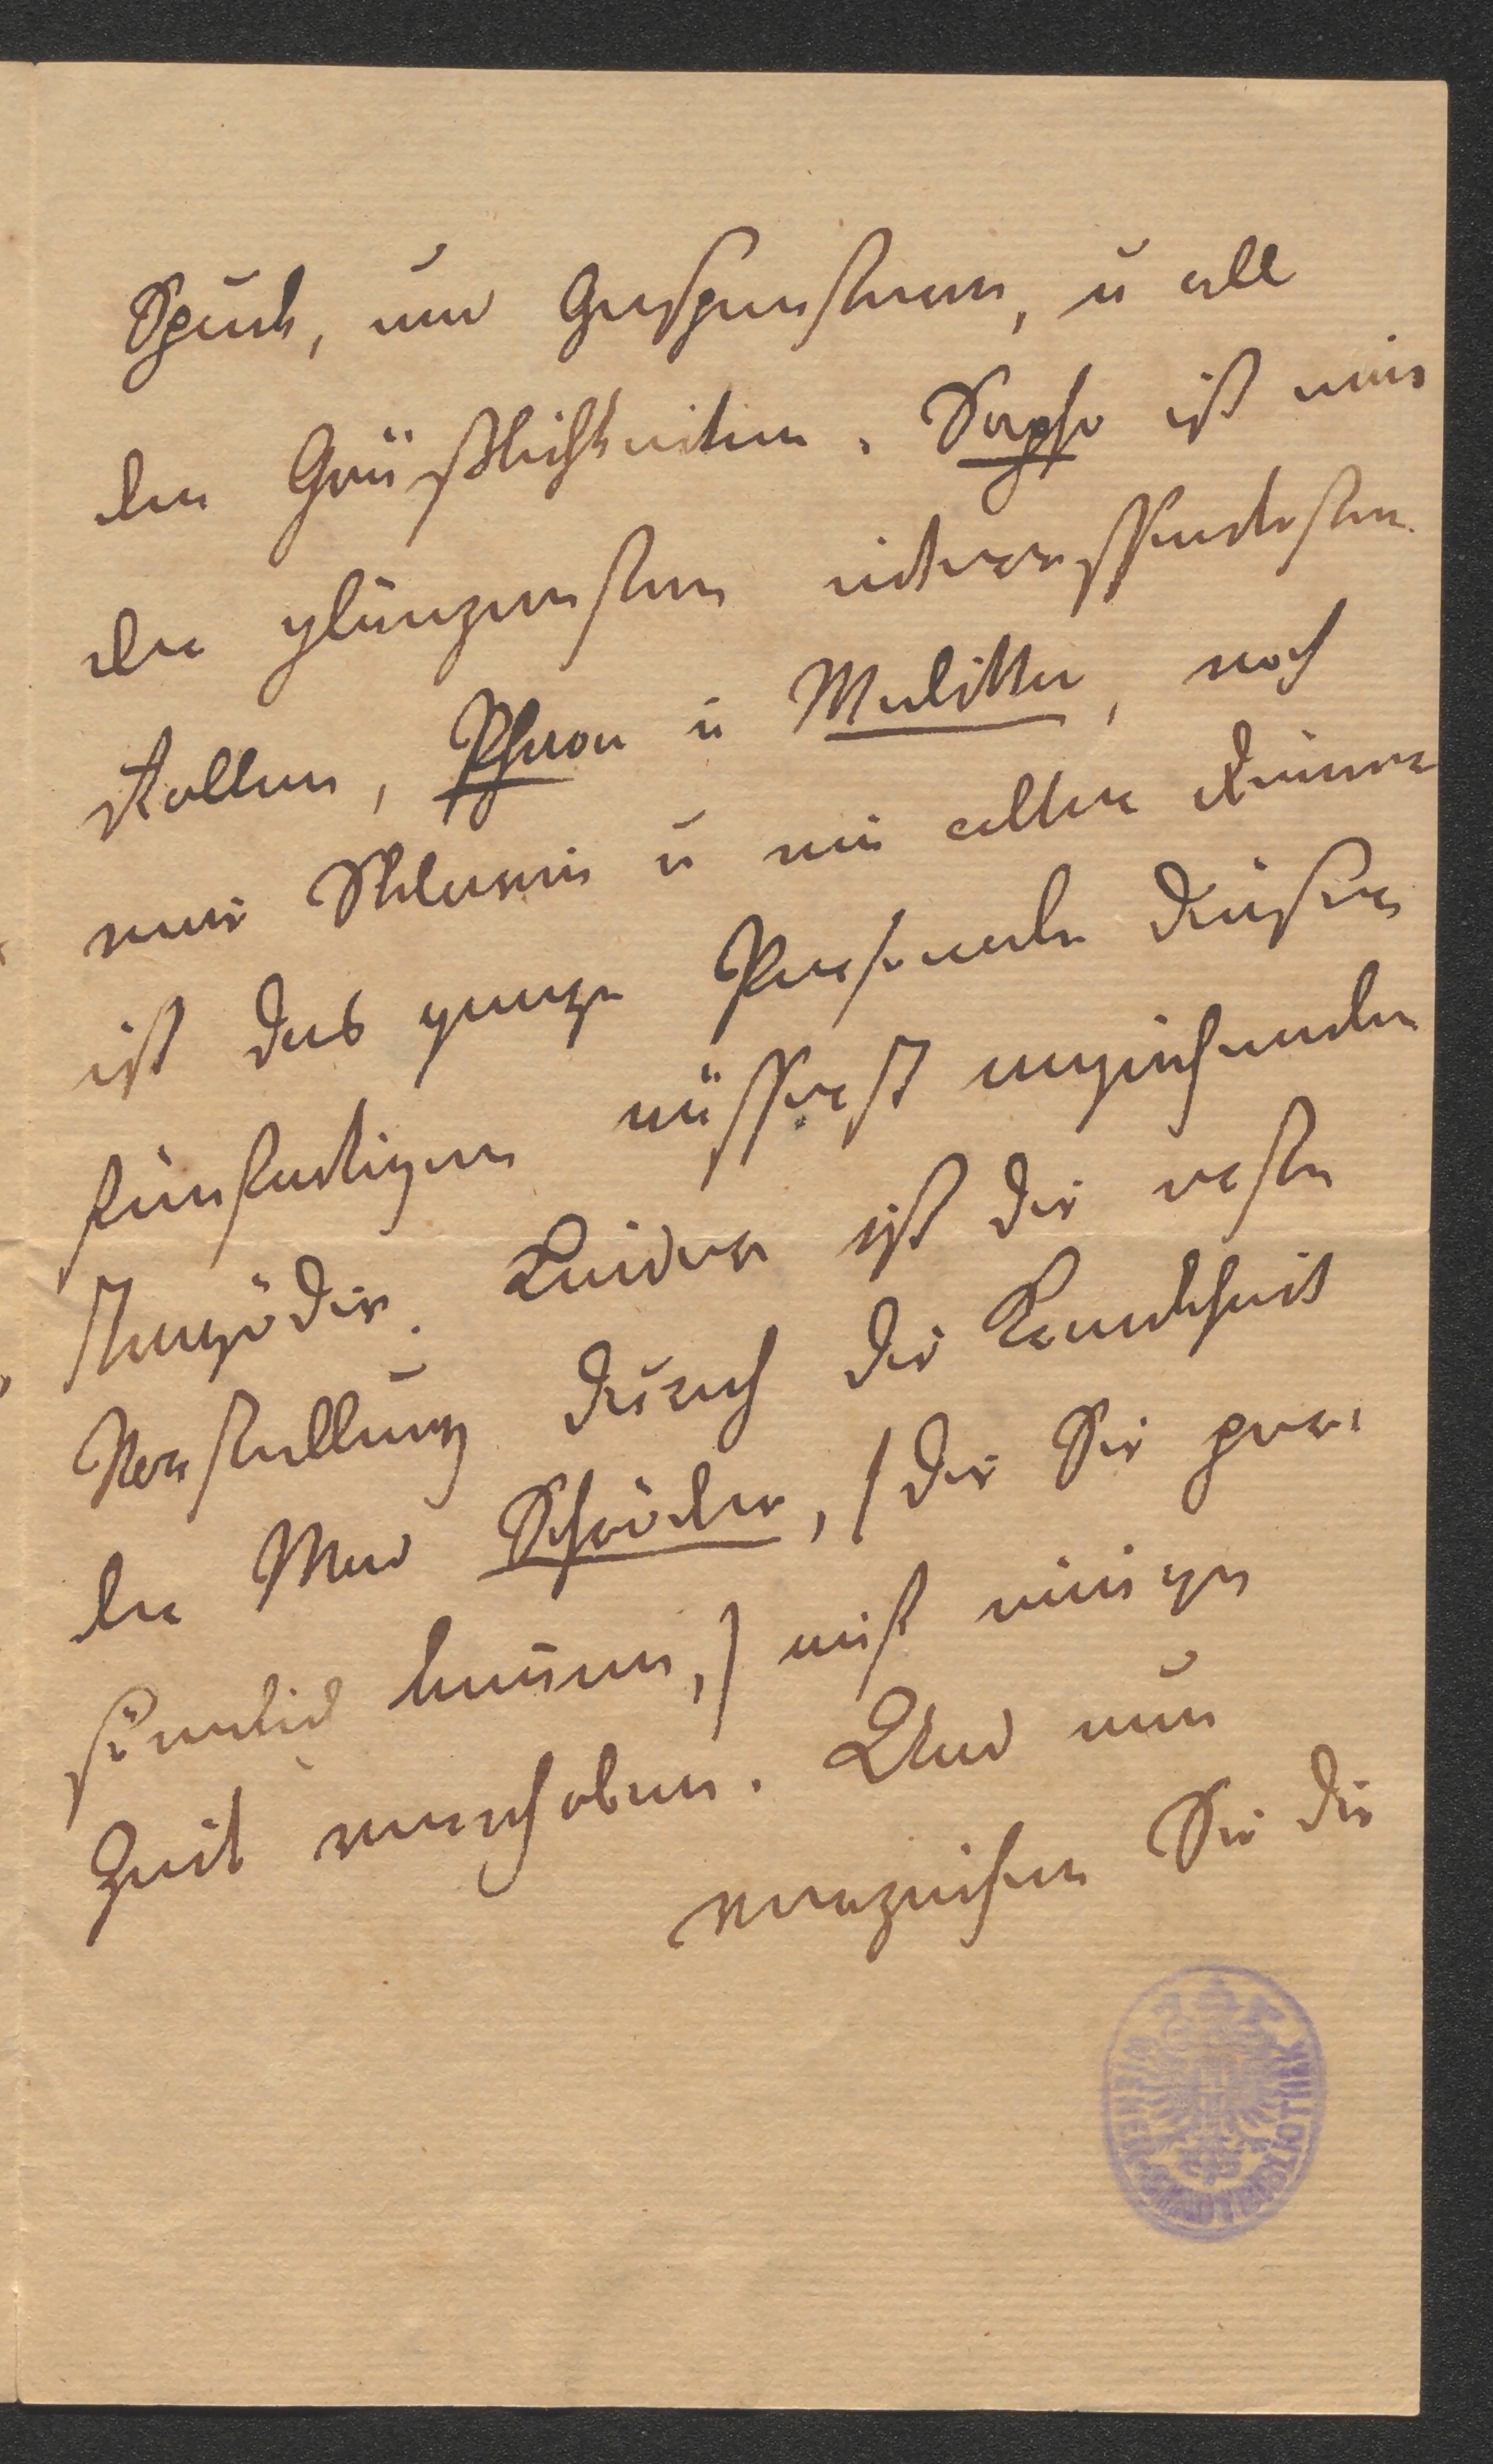 Spuck, und Gespenstern, u all
den Gräßlichkeiten. Sapho ist eine
der glänzensten interessantesten
Rollen, Phaon u Melitta, noch
eine Sklavin u ein alter Diener
ist das ganze Personale dieser
fünfactigen äusserst anziehenden
Tragödie. Leider ist die erste
Vorstellung durch die Krankheit
der Mad Schröder, /die Sie per=
sönlich kennen,/ auf einige
Zeit verschoben. Und nun
verzeihen Sie die
WIENER STADTBIBLIOTHEK